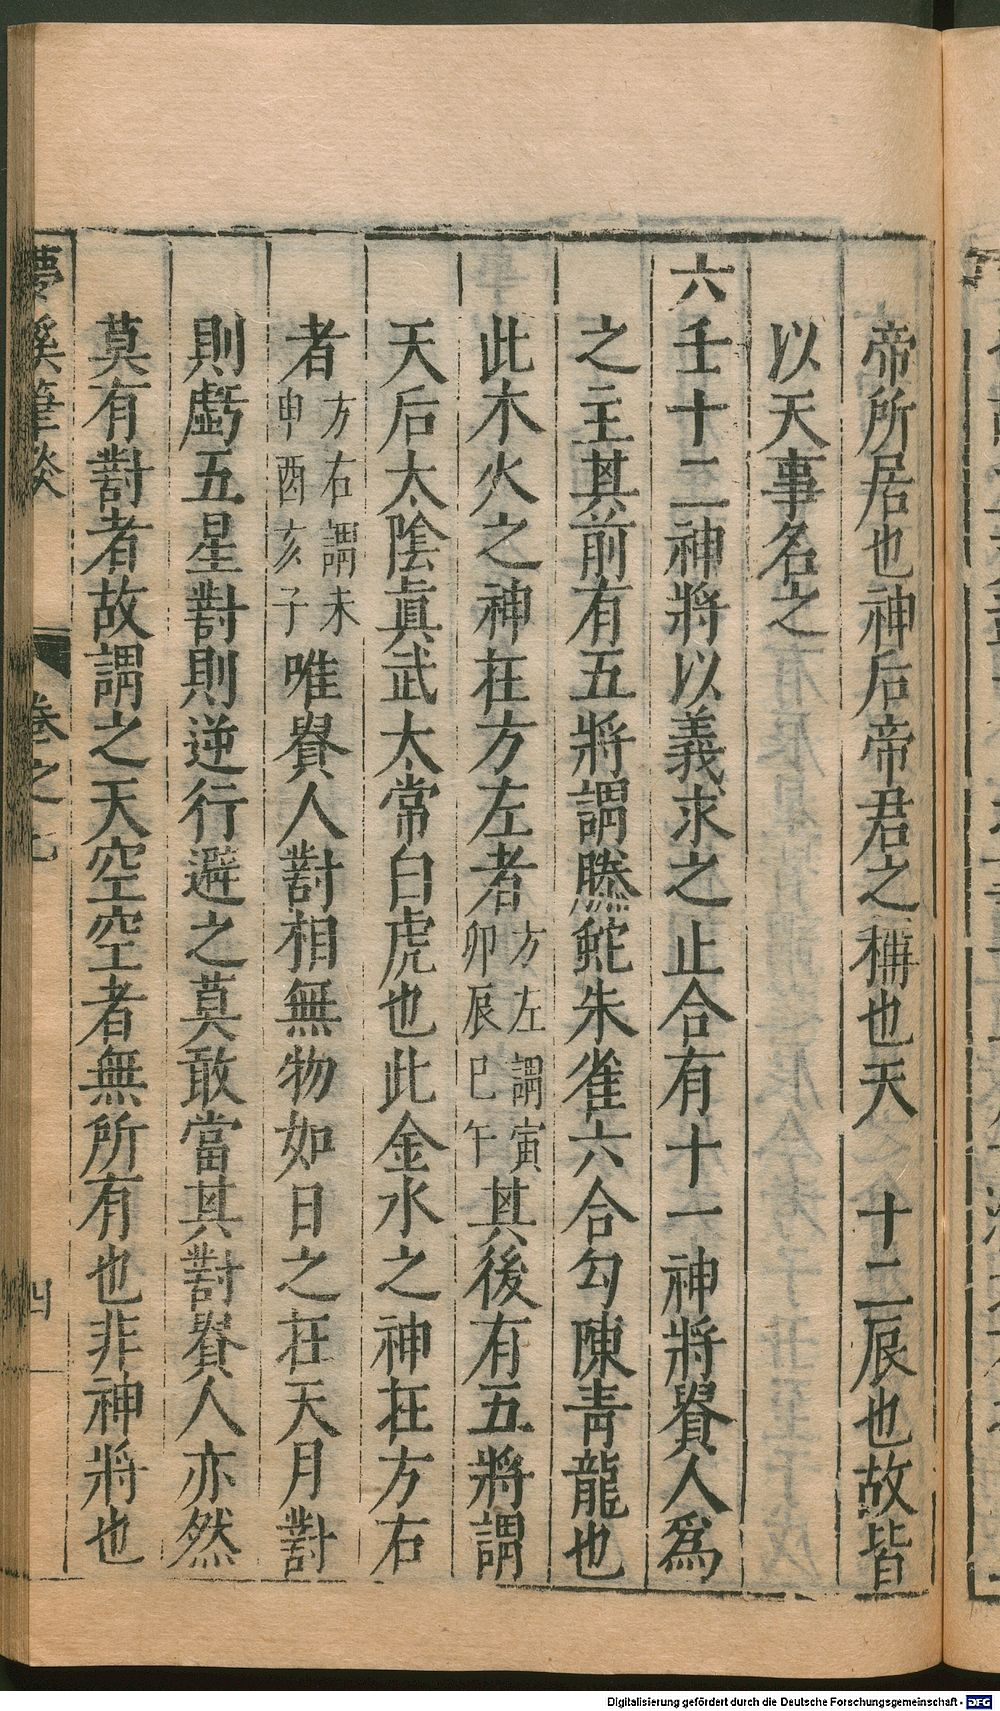 帝所居也神后帝君之稱也天 十二辰也故皆
以天事名之
六壬十二神將以義求之止合有十一神將貴人爲
之主其前有五將謂螣蛇朱雀六合勾陳青龍也
此木火之神在方左者方左謂寅卯辰巳午其後有五將謂
天后太陰眞武太常白虎也此金水之神在方右
者方右謂未申酉亥子唯貴人對相無物如日之在天月對
則虧五星對則逆行避之莫敢當其對貴人亦然
莫有對者故謂之天空空者無所有也非神將也
夢溪筆談 卷之七 四
Digitalisierung gefördert durch die Deutsche Forschungsgemeinschaft - DFG